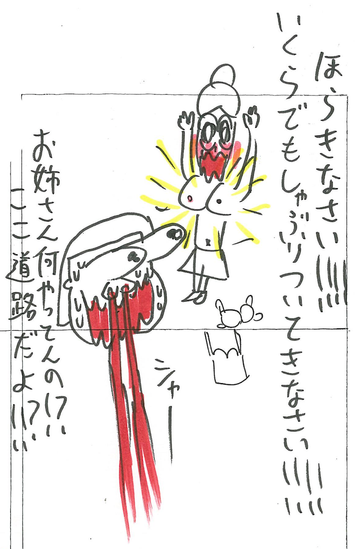 ほらきなさい!!!!!
いくらでもしゃぶりついてきなさい!!!!!!!
お姉さん何やってんの!?!!
ここ道路だよ!!?!!
シャー